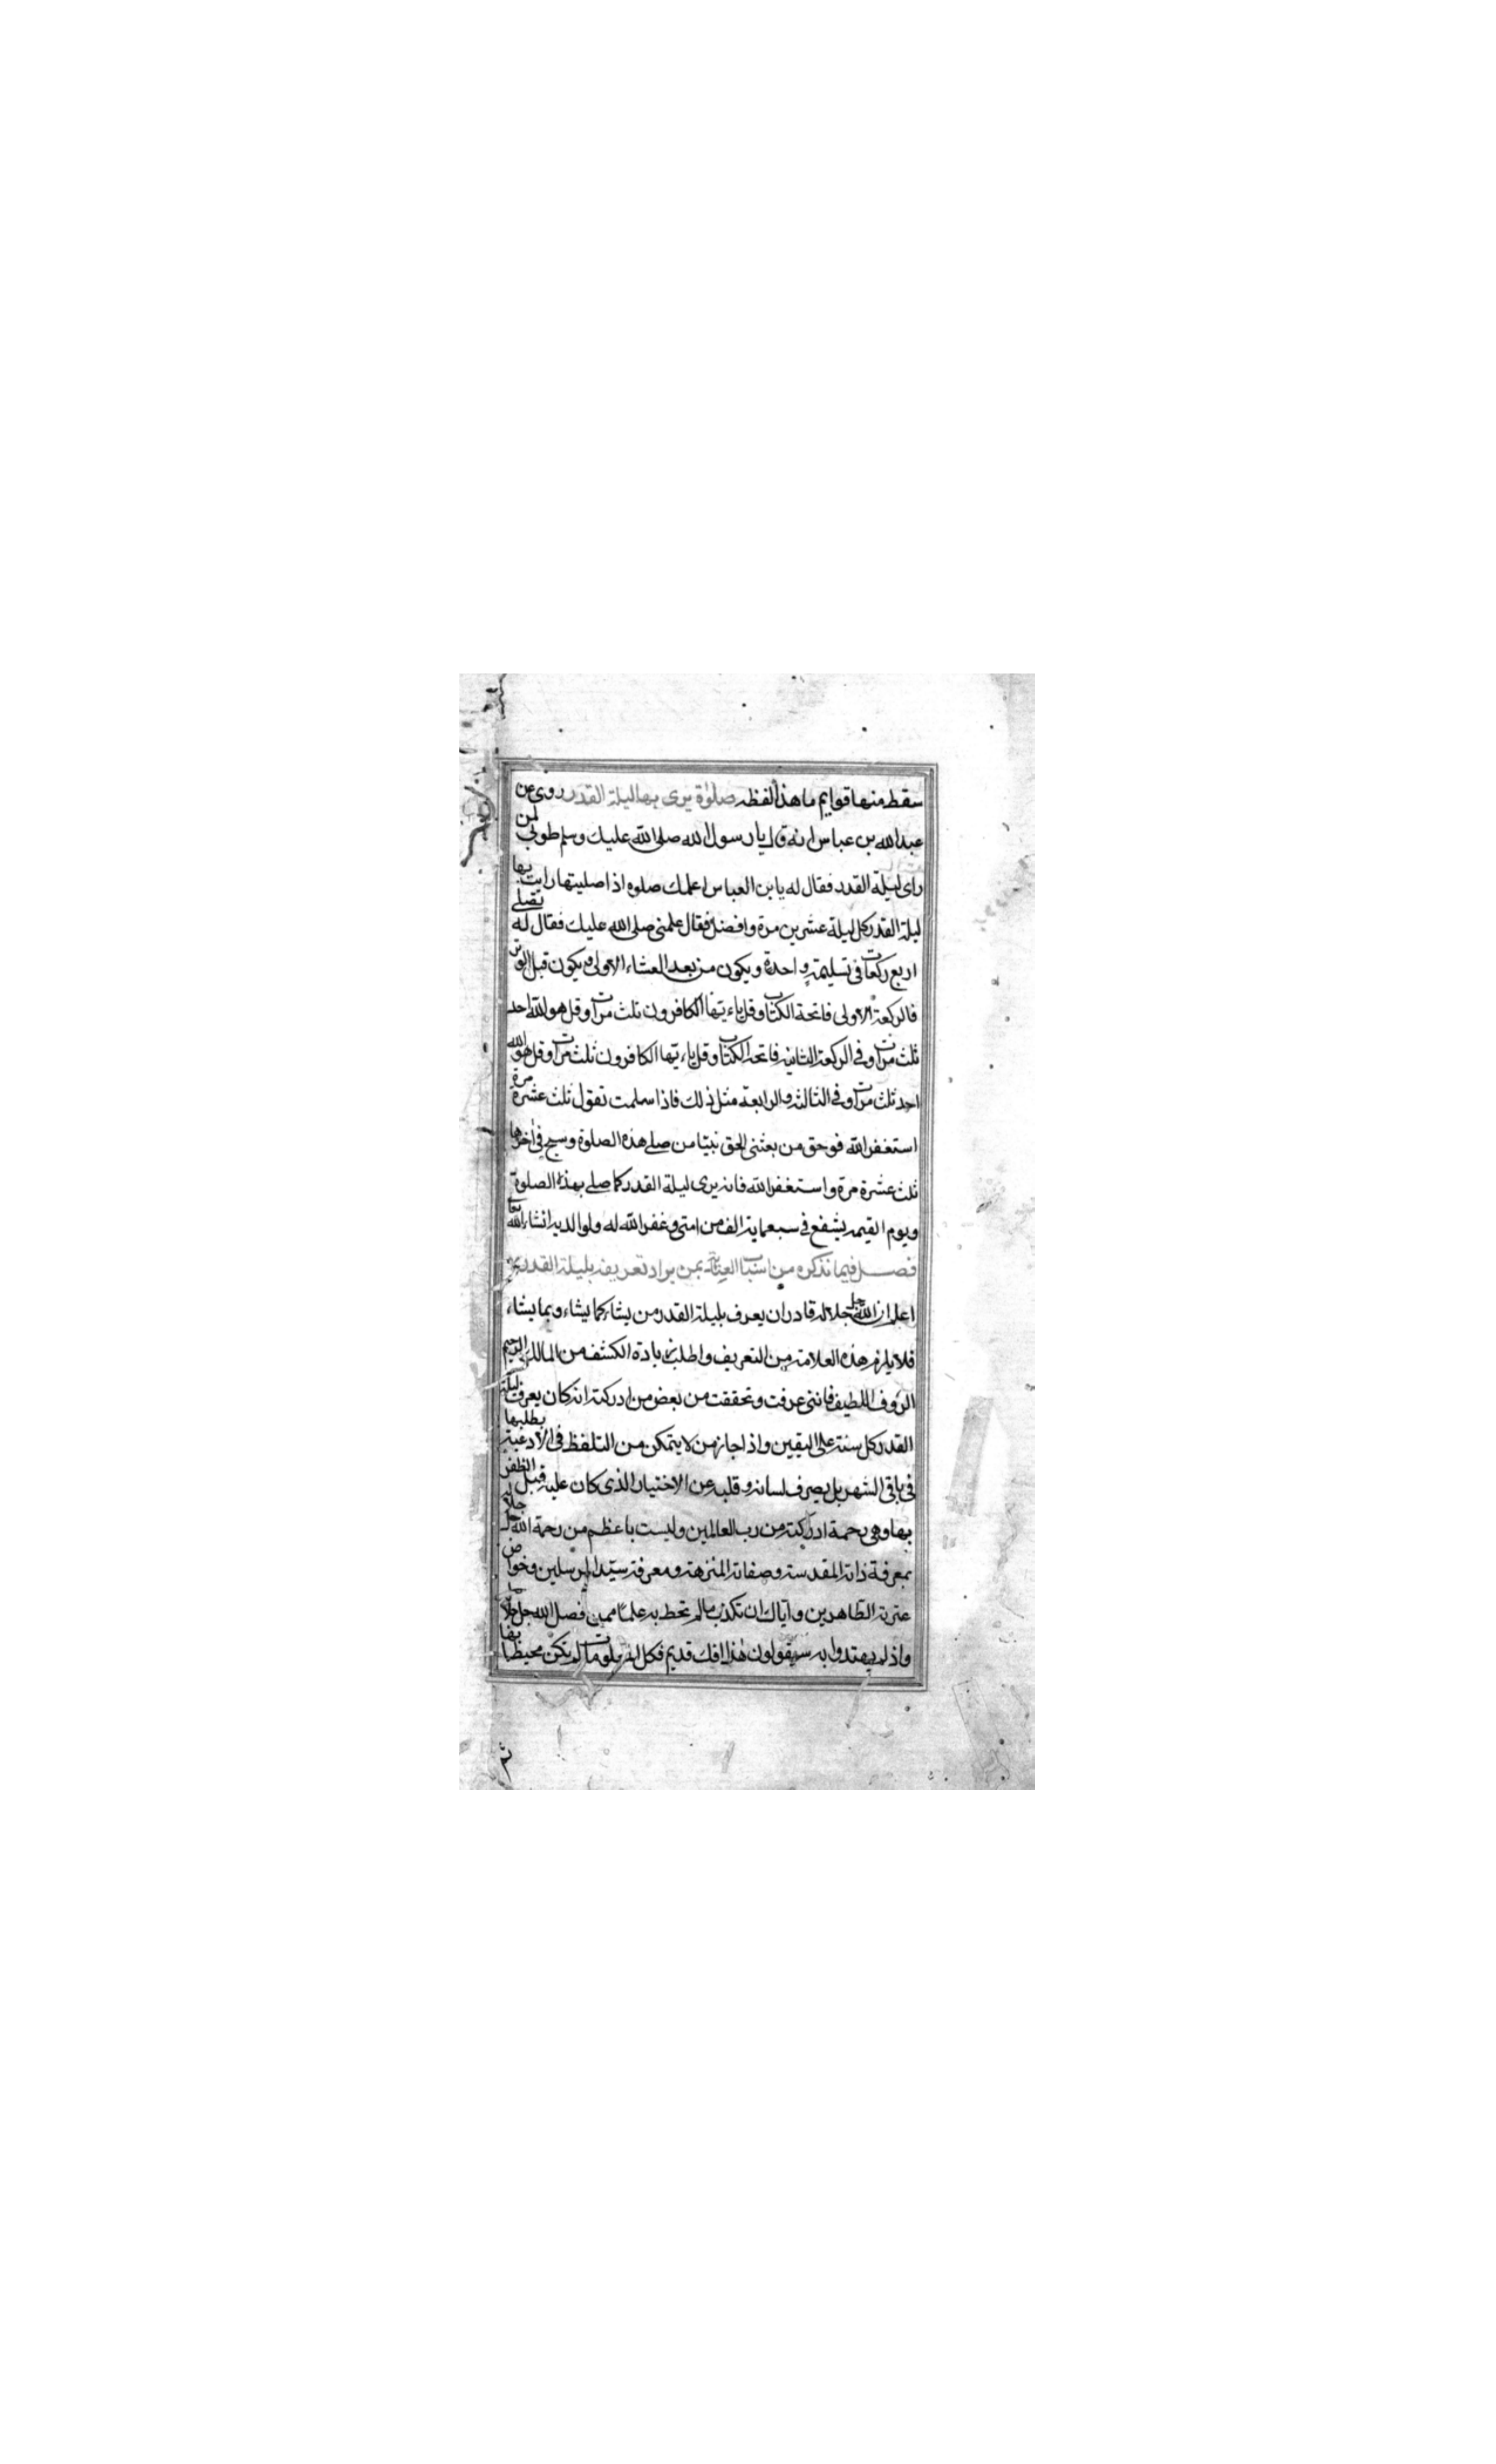 سقط منها قوايم ما هذا لفظه صلوٰة يرى بها ليلة القدر روى عن
عبدالله بن عباس انه قال يا رسول الله صلى الله عليك وسلم طوبى لمن
راى ليلة القدر فقال له يا بن العباس اعلمك صلوه اذا صليتها رايت بها
ليلة القدر كل ليلة عشرين مرة وافضل فقال علمنى صلى الله عليك فقال له تصلى
اربع ركعات فى تسليمة واحدة ويكون من بعد العشاء الاولى ويكون قبل الوتر
فالركعة الاولى فاتحة الكتاب وقل ياءيها الكافرون ثلث مرات وقل هو الله احد
ثلث مرات وفى الركعة الثانيه فاتحة الكتاب وقل ياءيها الكافرون ثلث مرات وقل هو الله
احد ثلث مرات وفى الثالثه والرابعة مثل ذلك فاذا سلمت تقول ثلث عشرة مرة
استغفر الله فوحق من بعثنى بالحق نبيا من صلى هذه الصلوة وسبح فى اخرها
ثلث عشرة مرة واستغفر الله فانه يرى ليلة القدر كلما صلى بهذه الصلوة
ويوم القيمه يشفع فى سبعماية الف من امتى وغفر الله له ولوالديه انشاء الله تعالى
فصل فيما نذكره من اسباب العناية بمن يراد تعريفه بليلة القدر
اعلم ان الله جل جلاله قادر ان يعرف بليلة القدر من يشاء كما يشاء وبما يشاء
فلا يلزم هذه العلامة من التعريف واطلب زيادة الكشف من المالك الرحيم
الرؤف اللطيف فاننى عرفت وتحققت من بعض من ادركته انه كان يعرف ليلة
القدر كل سنة على اليقين واذا جاز من لا يتمكن من التلفظ فى الادعية بطلبها
فى باقى الشهر بل يصرف لسانه وقلبه عن الاختيار الذى كان عليه قبل الظفر
بها وهى رحمة ادركته من رب العالمين وليست باعظم من رحمة الله جل جلاله
بمعرفة ذاته المقدسة وصفاته المنزهة ومعرفة سيد المرسلين وخواص
عترته الطاهرين واياك ان تكذب بما لم تحط به علما من فضل الله جل جلاله
واذ لم يهتدوا به سيقولون هٰذا افك قديم فكل المعلومات لم تكن محيطا بها